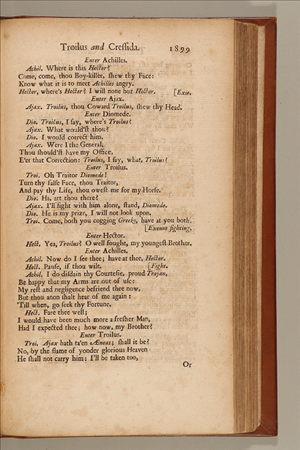 Troilus and Cressida. 1899
Enter Achilles.
Achil. Where is this Hector?
Come, come, thou Boy-killer, shew thy Face:
Know what it is to meet Achilles angry.
Hector, where's Hector? I will none but Hector. [Exit.
Enter Ajax.
Ajax. Troilus, thou Coward Troilus, shew thy Head.
Enter Diomede.
Dio. Troilus, I say, where's Troilus?
Ajax. What would'st thou?
Dio. I would correct him.
Ajax. Were I the General,
Thou should'st have my Office,
E'er that Correction: Troilus, I say, what, Troilus!
Enter Troilus.
Troi. Oh Traitor Diomede!
Turn thy false Face, thou Traitor,
And pay thy Life, thou owest me for my Horse.
Dio. Ha, art thou there?
Ajax. I'll fight with him alone, stand, Diomede.
Dio. He is my prize, I will not look upon.
Troi. Come, both you cogging Greeks, have at you both.
[Exeunt fighting.
Enter Hector.
Hect. Yea, Troilus? O well fought, my youngest Brother.
Enter Achilles.
Achil. Now do I see thee; have at thee, Hector.
Hect. Pause, if thou wilt. [Fight.
Achil. I do disdain thy Courtesie, proud Trojan,
Be happy that my Arms are out of use:
My rest and negligence befriend thee now,
But thou anon shalt hear of me again:
'Till when, go seek thy Fortune.
Hect. Fare thee well;
I would have been much more a fresher Man,
Had I expected thee; how now, my Brother?
Enter Troilus.
Troi. Ajax hath ta'en Æneas; shall it be?
No, by the flame of yonder glorious Heaven
He shall not carry him; I'll be taken too,
Or